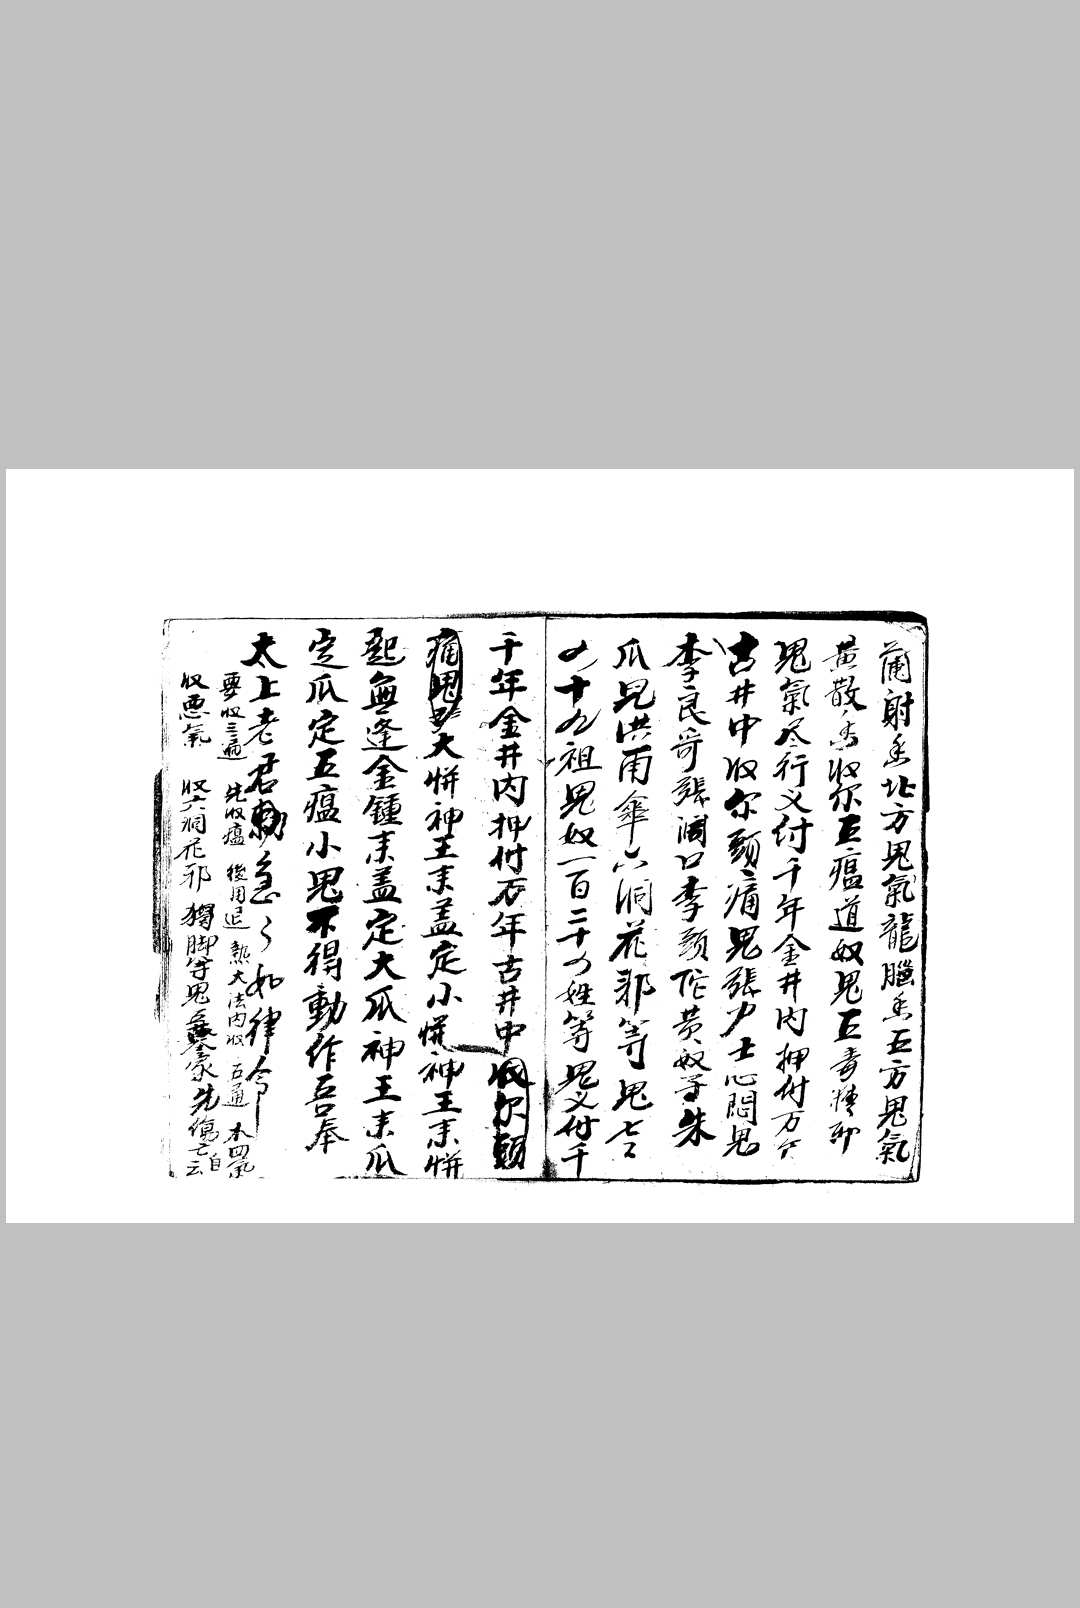 射香北方鬼氣龍腦香五方鬼氣
黃散香收尔五瘟道奴鬼五毒精邪
鬼氣尽行义付千年金井內押付万年
古井中收尔頭痛鬼張力士心悶鬼
李良哥張濶口李頭陀黃奴等朱
瓜児洪雨傘六洞花邪等鬼七
十九祖鬼奴一百二十姓等鬼义付千
千年金井内押付万年古井中收尔頭
痛鬼大恲神王来盖定小恲神王来恲
起無逢金鍾来盖定大瓜神王来瓜
定瓜定五瘟小鬼不得動作吾奉
太上老君勅急〻如律令
要收三遍 先收瘟 後用退 熱大法内收 五通 本四氣
收悪氣 收六洞花邪 獨脚等鬼 家先傷亡云